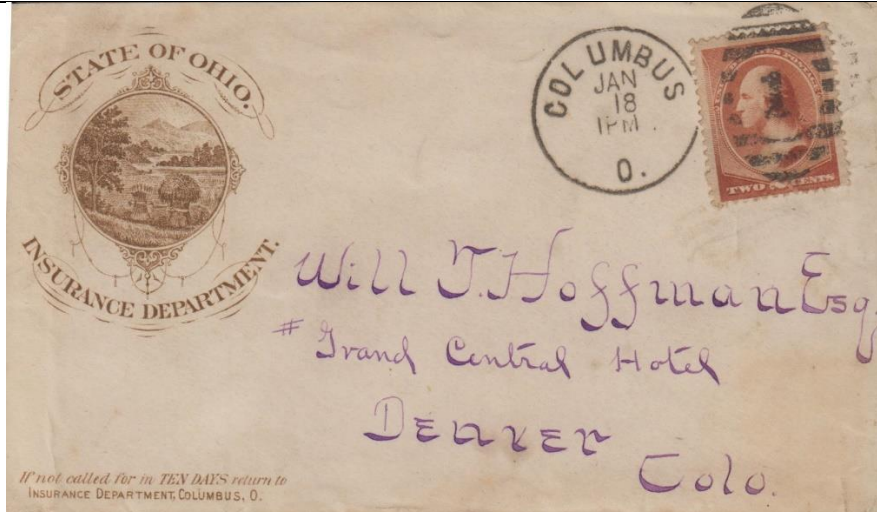 STATE OF OHIO.
INSURANCE DEPARTMENT.
COLUMBUS
JAN
18
1PM.
O.
TWO CENTS
Will T. Hoffman Esq.
# Grand Central Hotel
Denver
Colo.
If not called for in TEN DAYS return to
INSURANCE DEPARTMENT, COLUMBUS, O.